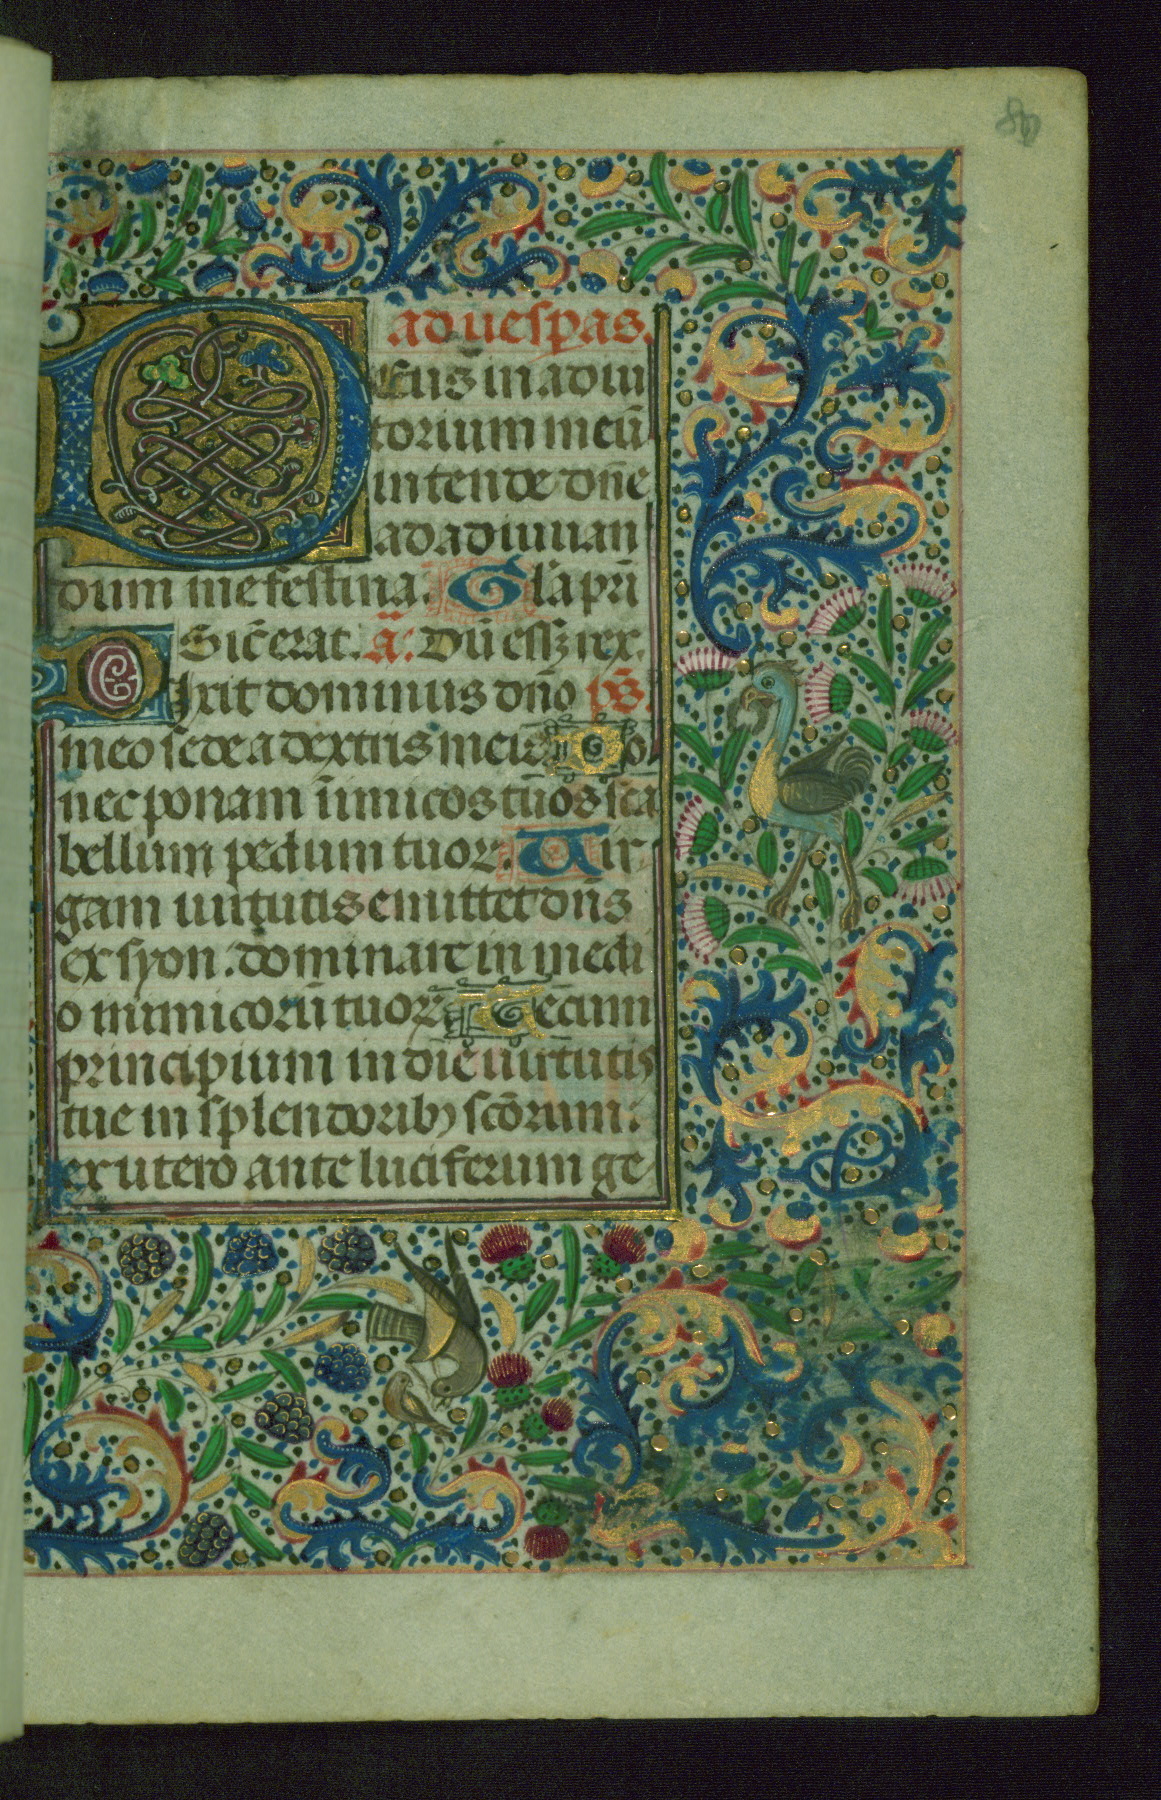 ad uespas.
Deus in adiu
torium meū
intende dn̄e
ad adiuuan
dum me festina. Gl'a pri
Sic̄ erat. a̅: Dū essꝫ rex.
Dixit dominus dn̄o ps̄.
meo sede a dextris meis Do
nec ponam īimicos tuos sca
bellum pedum tuorꝝ. Uir
gam uirtutis emittet dn̄s
ex syon. dominare in medi
o inimicorū tuorꝝ Tecum
principium in die uirtutis
tue in splendoribꝫ scōrum.
ex utero ante luciferum ge